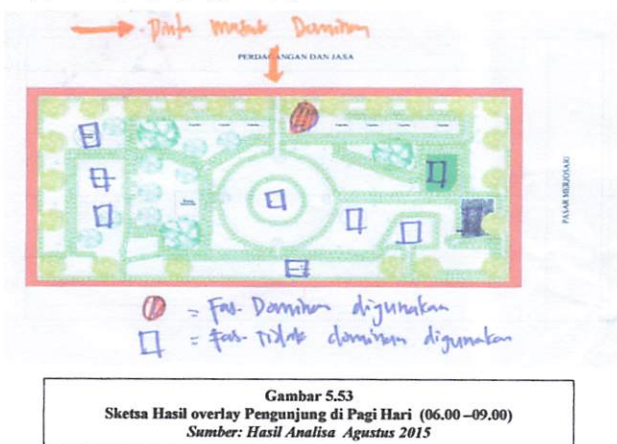 Pintu masuk Dominan
PERDAGANGAN DAN JASA
PASAR MERJOSARI
= Fas. Dominan digunakan
= Fas. Tidak dominan digunakan
Gambar 5.53
Sketsa Hasil overlay Pengunjung di Pagi Hari (06.00 –09.00)
Sumber: Hasil Analisa Agustus 2015